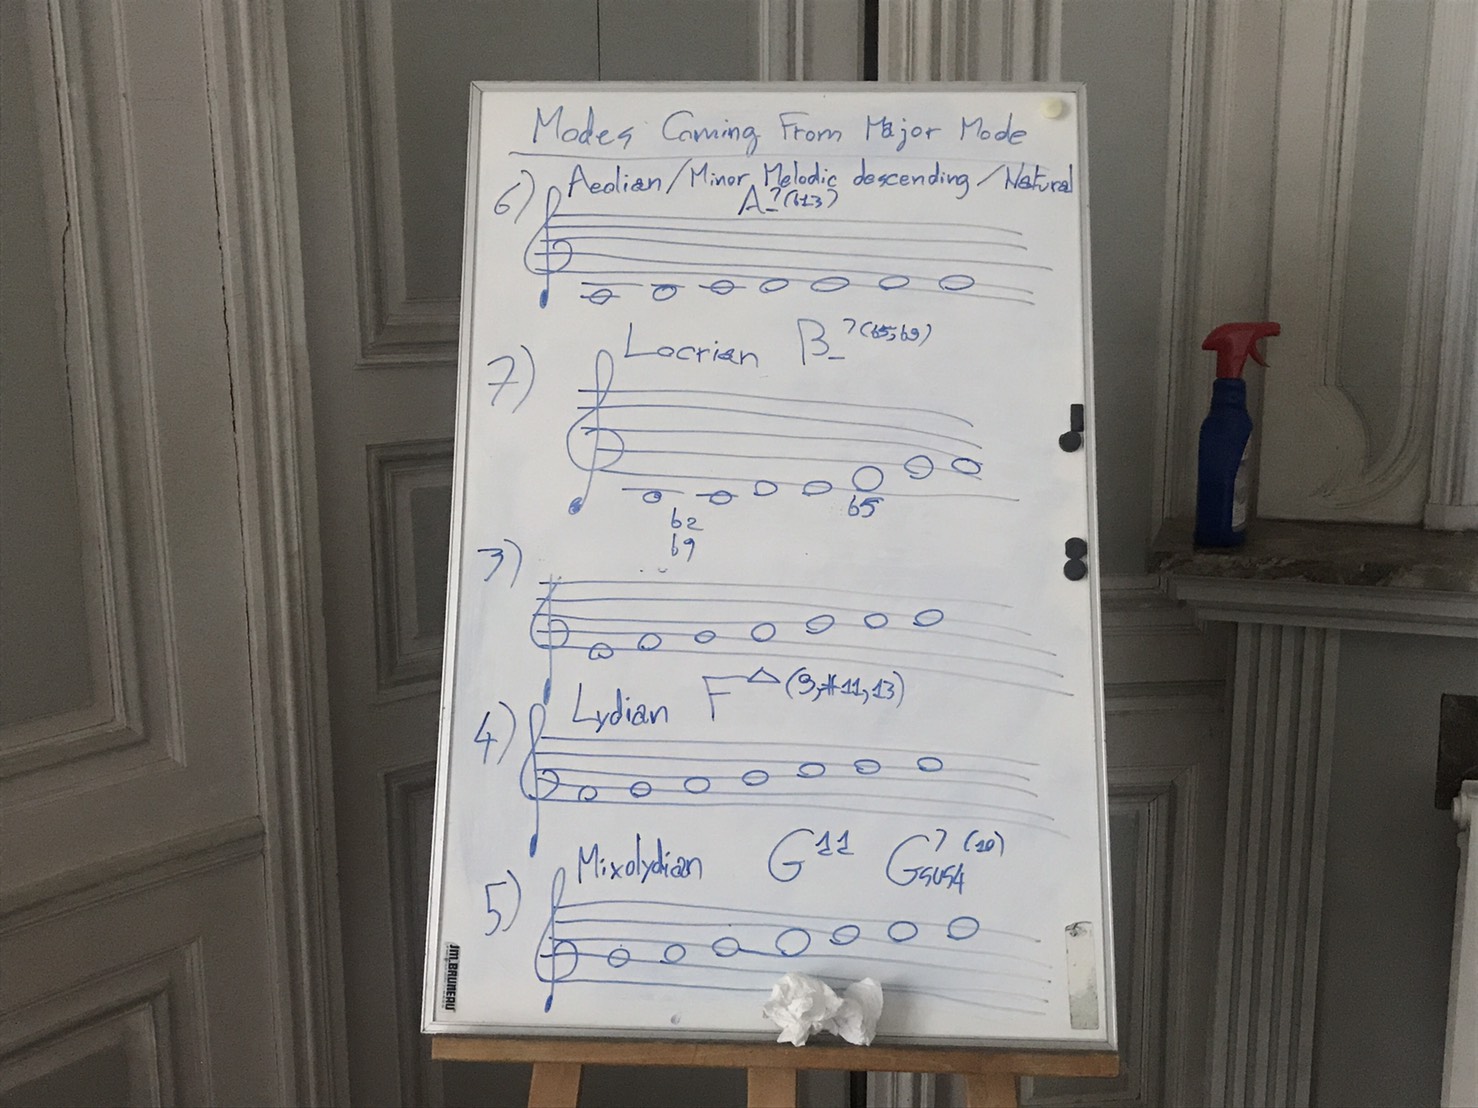 Modes Coming From Major Mode
6) Aeolian/Minor Melodic descending/Natural
A-7(b13)
7) Locrian B-7(b5,b9)
b5
b2
b9
3)
4) Lydian F△(9,#11,13)
5) Mixolydian G11 G7sus4(10)
JM.BRUNEAU